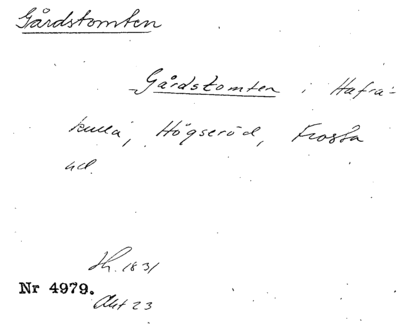 Gårdstomten
Gårdstomten i Hafra-
kulla, Högseröd, Frosta
hd.
Lh. 1831
Nr 4979.
Akt 23